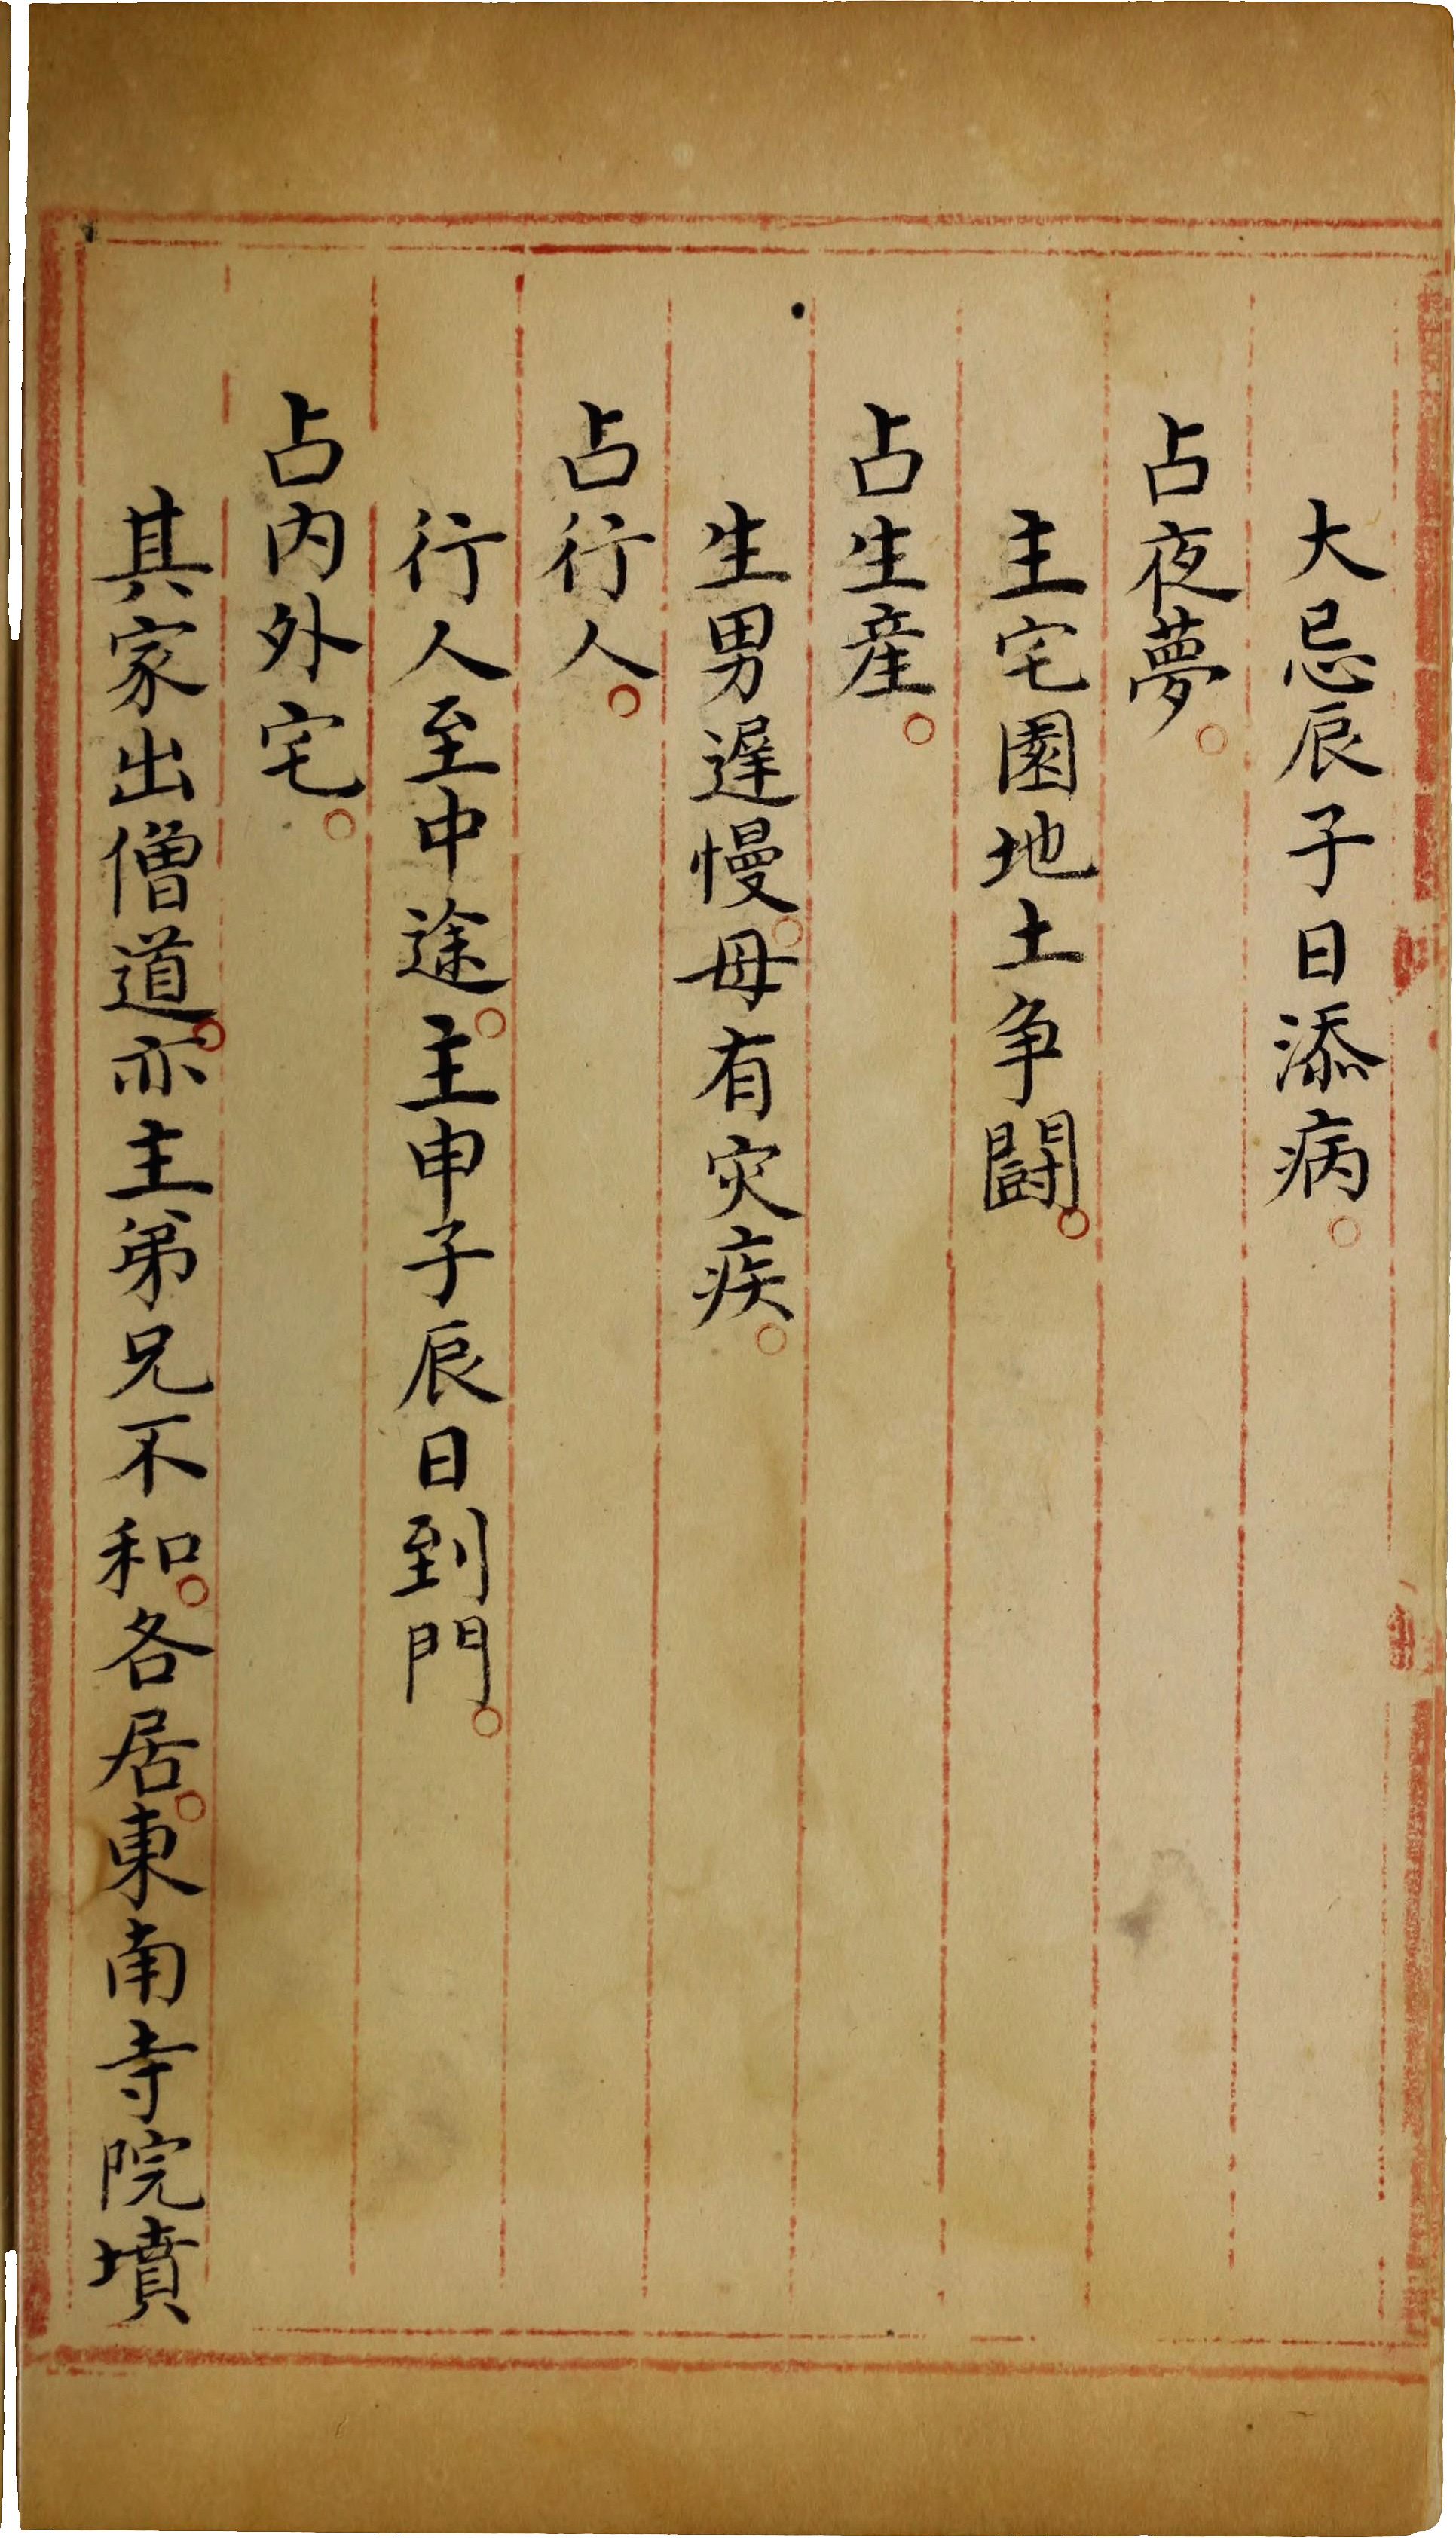 大忌辰子日添病。
占夜夢。
主宅園地土争鬪。
占生産。
生男遲慢。母有灾疾。
占行人。
行人至中途。主申子辰日到門。
占内外宅。
其家出僧道。亦主弟兄不和。各居。東南寺院墳